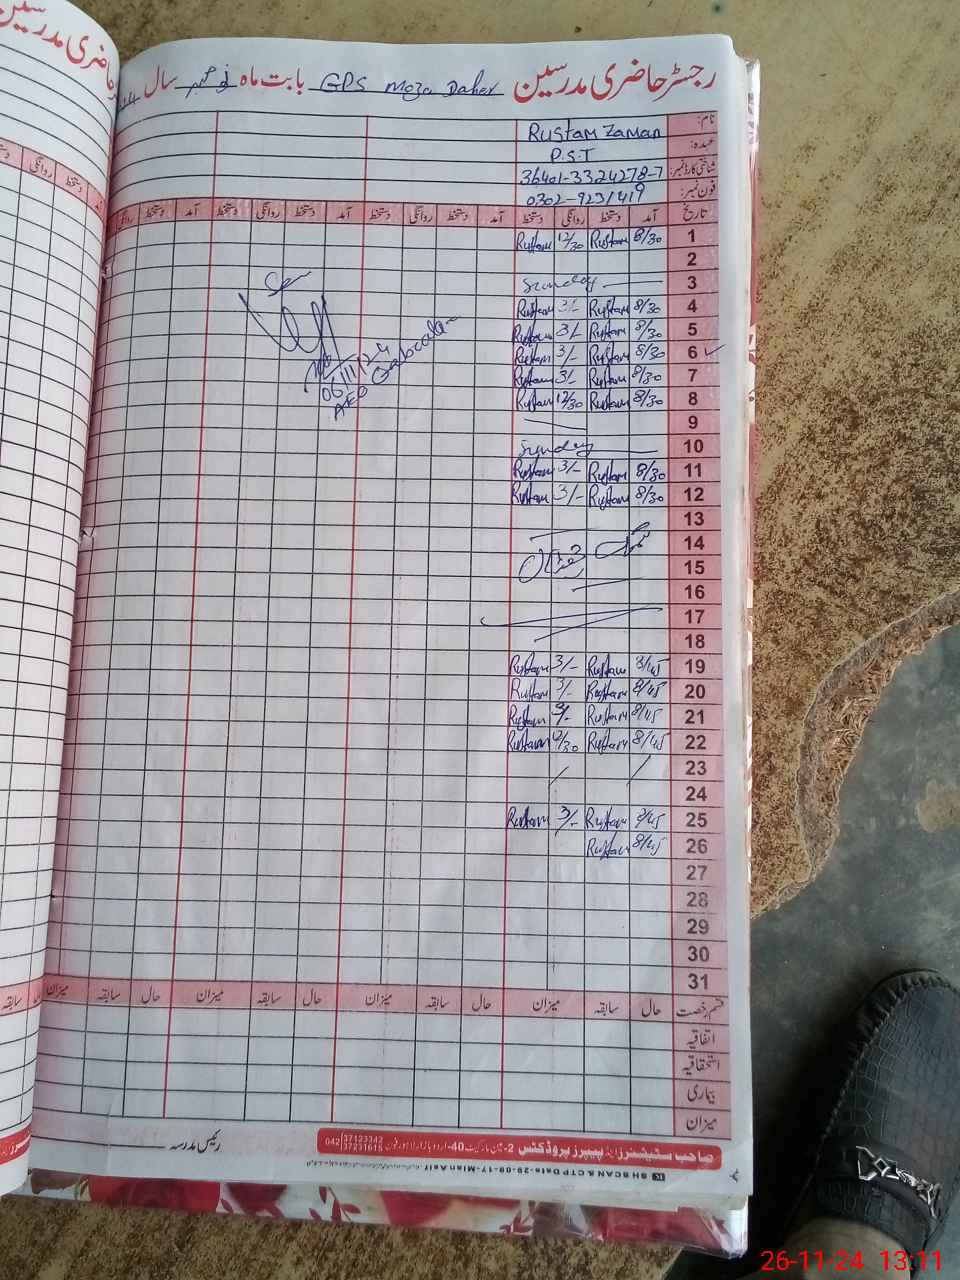 رجسٹر حاضری مدرسین GPS Moza Daher بابت ماہ نومبر سال
نام: Rustam Zaman
عہدہ: P.S.T
شناختی کارڈ نمبر: 36401-3324278-7
فون نمبر: 0302-9231419
تاریخ آمد دستخط روانگی دستخط آمد دستخط روانگی دستخط آمد دستخط روانگی دستخط آمد دستخط روانگی
1 8/30 Rustam 12/30 Rustam
2
3 Sunday
4 8/30 Rustam 3/- Rustam
5 8/30 Rustam 3/- Rustam
6 8/30 Rustam 3/- Rustam
7 8/30 Rustam 3/- Rustam
8 8/30 Rustam 12/30 Rustam
9
10 Sunday
11 8/30 Rustam 3/- Rustam
12 8/30 Rustam 3/- Rustam
13
14
15
16
17
18
19 8/45 Rustam 3/- Rustam
20 8/45 Rustam 3/- Rustam
21 8/45 Rustam 3/- Rustam
22 8/45 Rustam 12/30 Rustam
23
24
25 8/45 Rustam 3/- Rustam
26 8/45 Rustam
27
28
29
30
31
Seen
06/11/24
AEO
قسم رخصت حال سابقہ میزان حال سابقہ میزان حال سابقہ میزان حال سابقہ میزان
اتفاقیہ
استحقاقیہ
بیماری
میزان
رئیس مدرسہ
صاحب سٹیشنرز اینڈ پیپرز پروڈکٹس 2- 40-اردو بازار لاہور فون 042 37123342 37231615
SH SCAN & CTP Date-29-09-17-Mian Asif
26-11-24 13:11